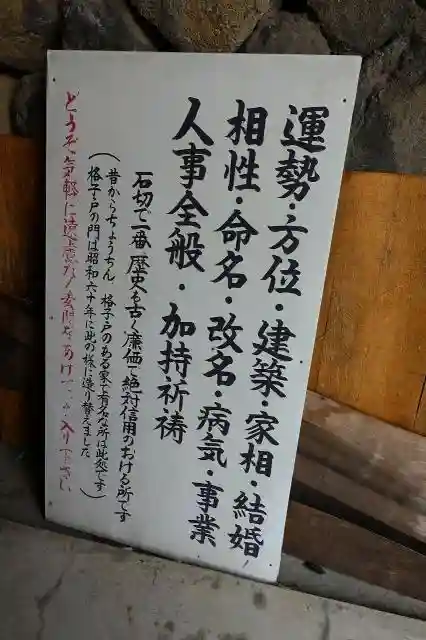 運勢・方位・建築・家相・結婚
相性・命名・改名・病気・事業
人事全般・加持祈祷
石切で一番歴史も古く廉価で絶対信用のおける所です
(昔からちょうちん 格子戸のある家で有名な所は此処です
格子戸の門は昭和六十年に此の様に造り替えました)
どうぞ気軽に遠慮なく玄関をあけて入り下さい